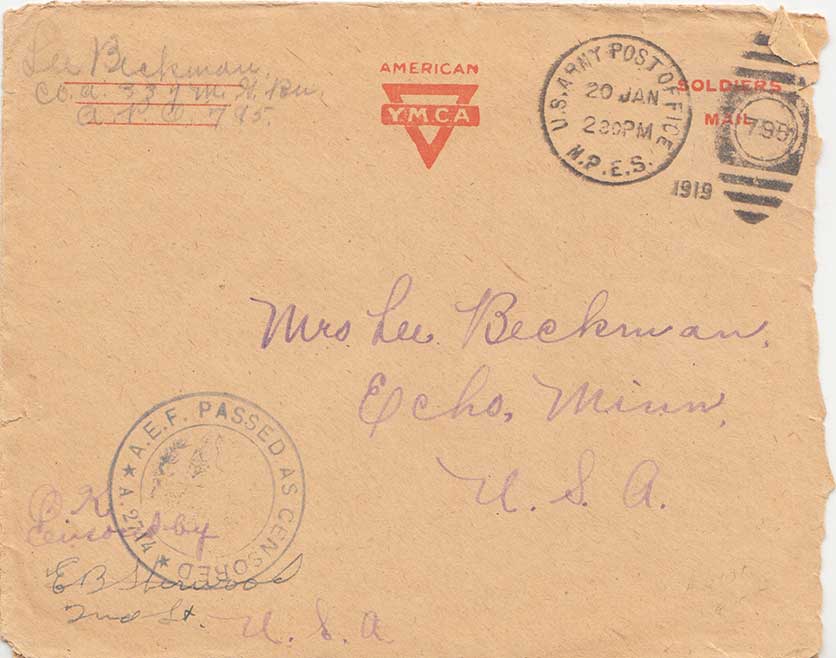 Lee Beckman,
Co. A. 337 M. G. Bn.
A. P. O. 795.
AMERICAN
Y.M.C.A
U.S. ARMY POST OFFICE
20 JAN
230PM
M.P.E.S.
1919
SOLDIERS
MAIL
795
Mrs Lee Beckman,
Echo, Minn,
U. S. A.
A.E.F. PASSED AS CENSORED
A. 2714
O. K.
Censored by
E B Sherwood
2nd Lt.
U. S. A